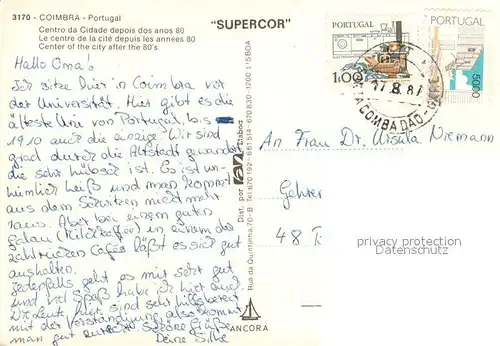 3170 - COIMBRA - Portugal
Centro da Cidade depois dos anos 80
Le centre de la cité depuis les années 80
Center of the city after the 80's
"SUPERCOR"
PORTUGAL
1.00
PORTUGAL
5000
17.8.87
SANTA COMBA DÃO
Hallo Oma!
Ich sitze hier in Coimbra vor
der Universität. Hier gibt es die
älteste Uni von Portugal, bis
1910 auch die einzige. Wir sind
grad durch die Altstadt gewandert
die sehr hübsch ist. Es ist un-
heimlich heiß und man kommt
aus dem Schwitzen nicht mehr
raus. Aber bei einem guten
Galau (Milchkaffee) in einem der
zahlreichen Cafés läßt es sich gut
aushalten.
Jedenfalls geht es mir sehr gut
und viel Spaß habe ich hier auch
Die Leute hier sind sehr hilfsbereit
mit der Verständigung also kommt
man gut zurecht Schöne Grüße
Deine Silke
An Frau Dr. Ursula Niemann
48
Dist. por
Lisboa
Rua da Quintinha, 70 - B - Tel 670 192 - 661 514 - 670 830 - 1200 LISBOA
ANCORA
privacy protection